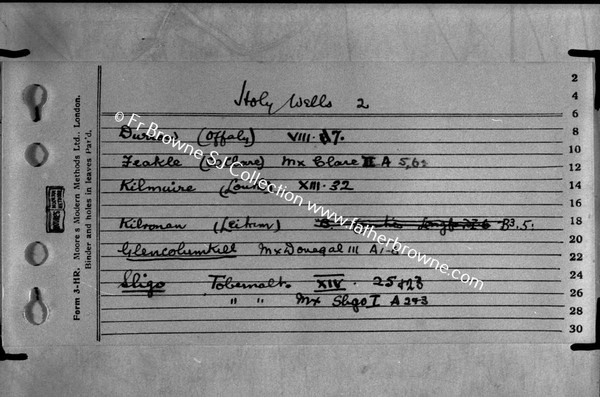 Holy Wells 2
Durrow (Offaly) VIII. 17.
Feakle (Clare) Mx Clare II A 5,6
Kilmuire (Louth) XIII. 32
Kilronan (Leitrim) B3.5.
Glencolumkill Mx Donegal III A1-
Sligo Tobernalt. XIV. 25+23
" " Mx Sligo I A 2+3
Form 3-HR. Moore's Modern Methods Ltd., London.
Binder and holes in leaves Pat'd.
2
4
6
8
10
12
14
16
18
20
22
24
26
28
30
© Fr Browne SJ Collection www.fatherbrowne.com